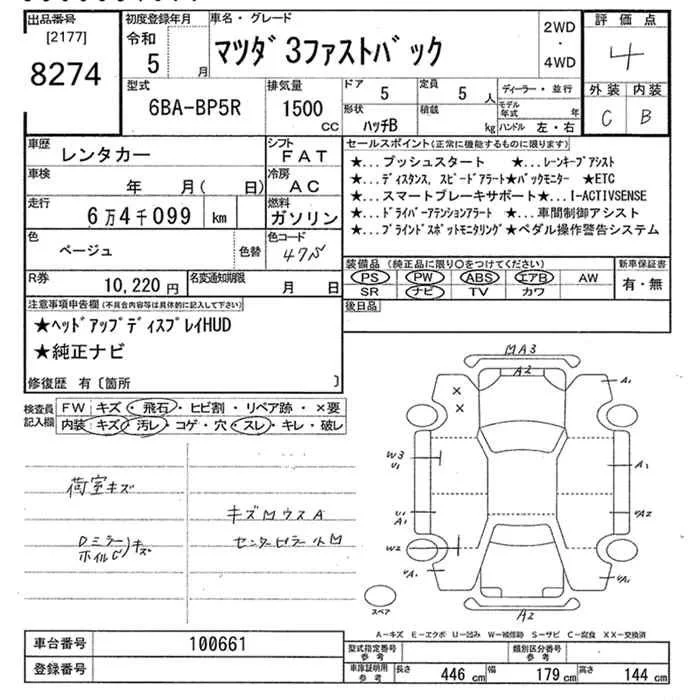 出品番号 初度登録年月 車名・グレード 2WD ・ 4WD 評価点
[2177] 令和
8274 5 月 マツダ 3ファストバック 4
型式 排気量 ドア 定員 ディーラー・並行 外装 内装
6BA-BP5R 1500 CC 5 5 人 モデル年式 年 C B
形状 積載
ハッチB kg ハンドル 左・右
車歴 レンタカー シフト FAT セールスポイント(正常に機能するものに限ります)
★...プッシュスタート ★...レーンキープアシスト
車検 年 月( 日) 冷房 AC ★...ディスタンス,スピードアラート★バックモニター ★ETC
★...スマートブレーキサポート★...I-ACTIVSENSE
走行 6万4千099 km 燃料 ガソリン ★...ドライバーアテンションアラート★...車間制御アシスト
★...ブラインドスポットモニタリング★ペダル操作警告システム
色 ベージュ 色替 色コード 47S
装備品(純正品に限り○をつけてください) 新車保証書
PS PW ABS エアB AW 有・無
SR ナビ TV カワ
R券 10,220円 名変通知期限 月 日
後日品
注意事項申告欄(不具合内容等は具体的に記入して下さい)
★ヘッドアップディスプレイHUD
★純正ナビ
修復歴 有〔箇所 〕
検査員記入欄 FW キズ・飛石・ヒビ割・リペア跡・×要
内装 キズ・汚レ・コゲ・穴・スレ・キレ・破レ
荷室キズ
キズMウスA
Dミラー
ホイルC キズ
センターピラー小M
MA3
A2
A1
×
×
W3
U1
A1
U1
A1
A2
W2
UA1
UA1
A2
スペア
A-キズ E-エクボ U-凹み W-補修跡 S-サビ C-腐食 XX-交換済
車台番号 100661
登録番号
型式指定番号参考 類別区分番号参考
車庫証明用参考 長さ 446 cm 幅 179 cm 高さ 144 cm